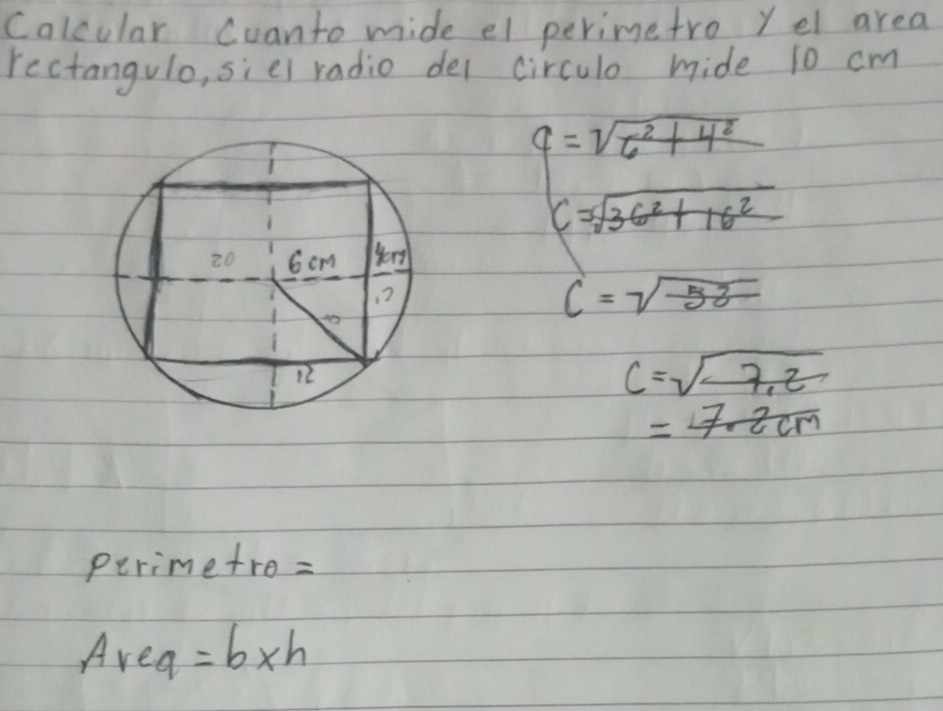 Calcular Cuanto mide el perimetro y el area
rectangulo, si el radio del circulo mide 10 cm
20
6 cm
4cm
12
q = √6² + 4²
C = √36² + 16²
C = √52
C = √7.2
= 7.2 cm
perimetro =
Area = b x h